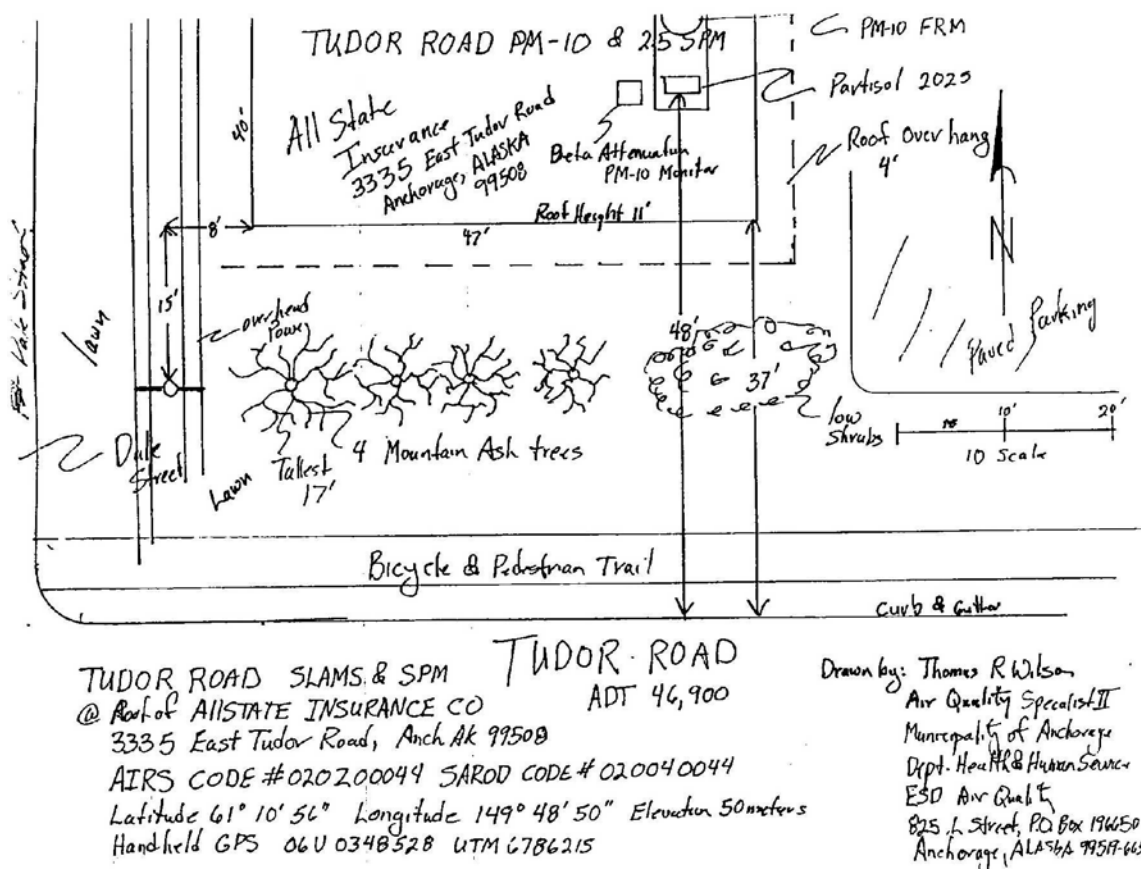 TUDOR ROAD PM-10 & 2.5 SPM
PM-10 FRM
Partisol 2025
Roof Overhang
4'
40'
All State
Insurance
3335 East Tudor Road
Anchorage, ALASKA
99508
Beta Attenuation
PM-10 Monitor
Roof Height 11'
8'
47'
N
15'
lawn
overhead
Power
48'
37'
Paved Parking
low
Shrubs
10'
20'
10 Scale
Dale
Street
Lawn
Tallest
17'
4 Mountain Ash trees
Bicycle & Pedestrian Trail
Curb & Gutter
TUDOR ROAD
ADT 46,900
TUDOR ROAD SLAMS & SPM
@ Roof of AllSTATE INSURANCE CO
3335 East Tudor Road, Anch Ak 99508
AIRS CODE #020200044 SAROD CODE #020040044
Latitude 61° 10' 56" Longitude 149° 48' 50" Elevation 50 meters
Handheld GPS 06U 0348528 UTM 6786215
Drawn by: Thomas R Wilson
Air Quality Specialist II
Municipality of Anchorage
Dept. Health & Human Service
ESD Air Quality
825 L Street, P.O. Box 196650
Anchorage, ALASKA 99519-665